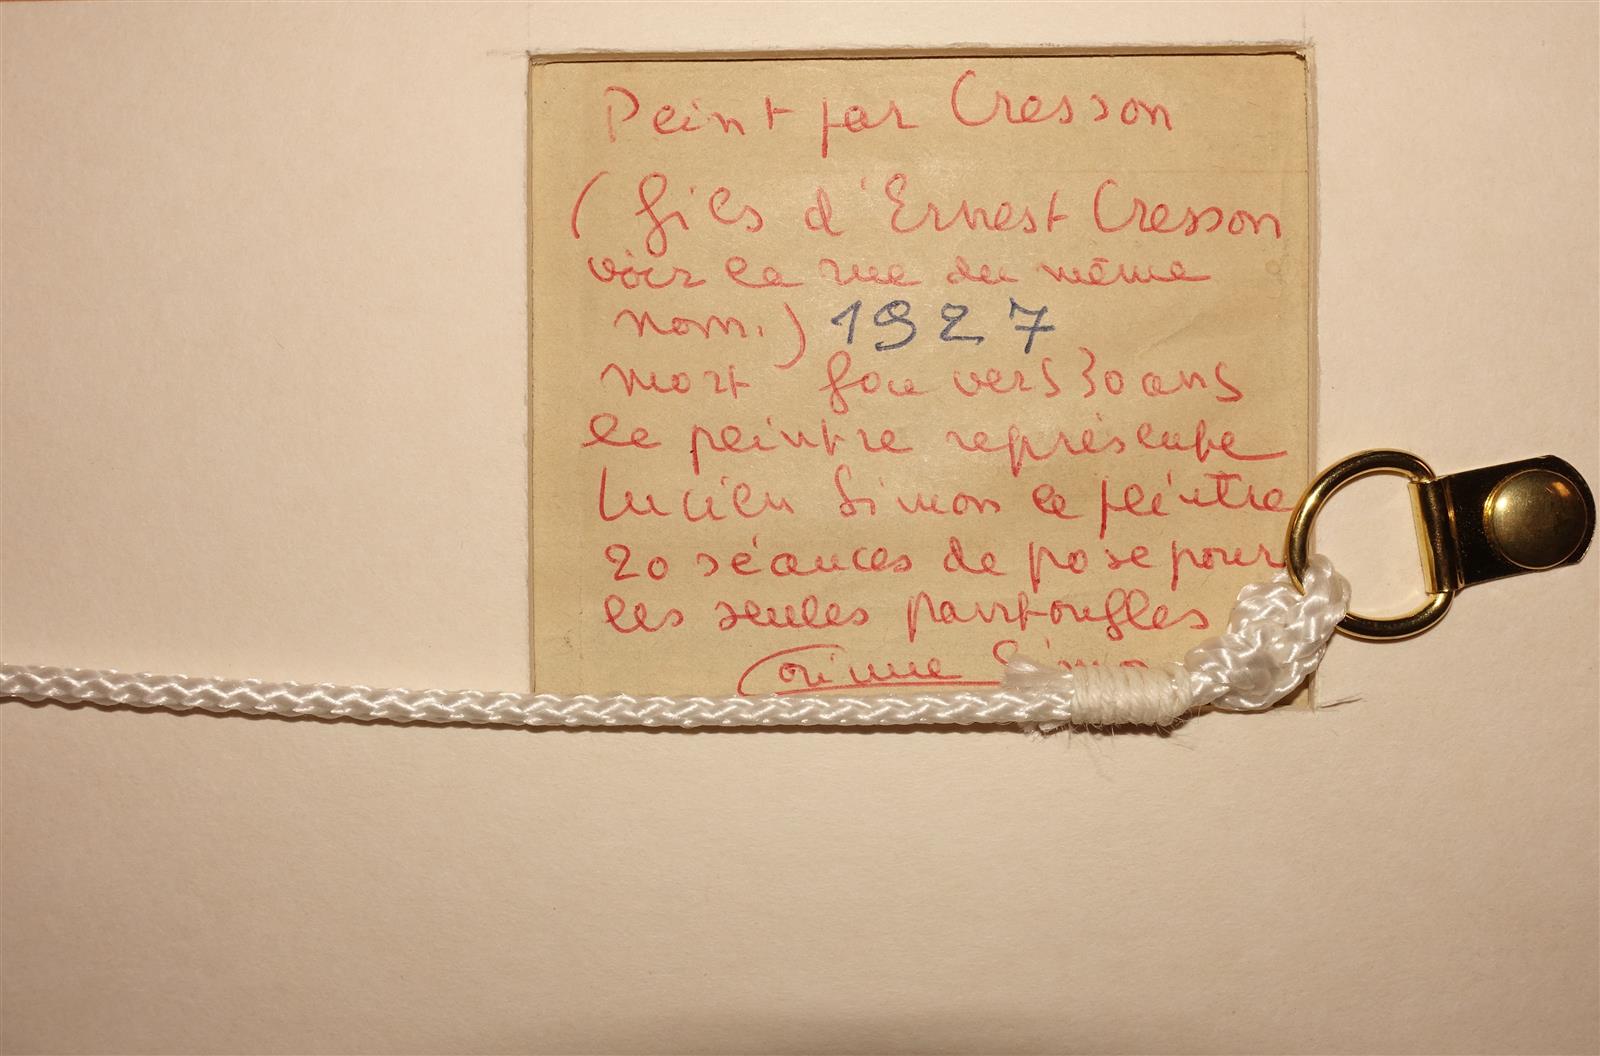 Peint par Cresson
(fils d'Ernest Cresson
voir la rue du même
nom.) 1927
mort fou vers 30 ans
le peintre représente
Lucien Simon le peintre
20 séances de pose pour
les seules pantoufles
Corinne Simon